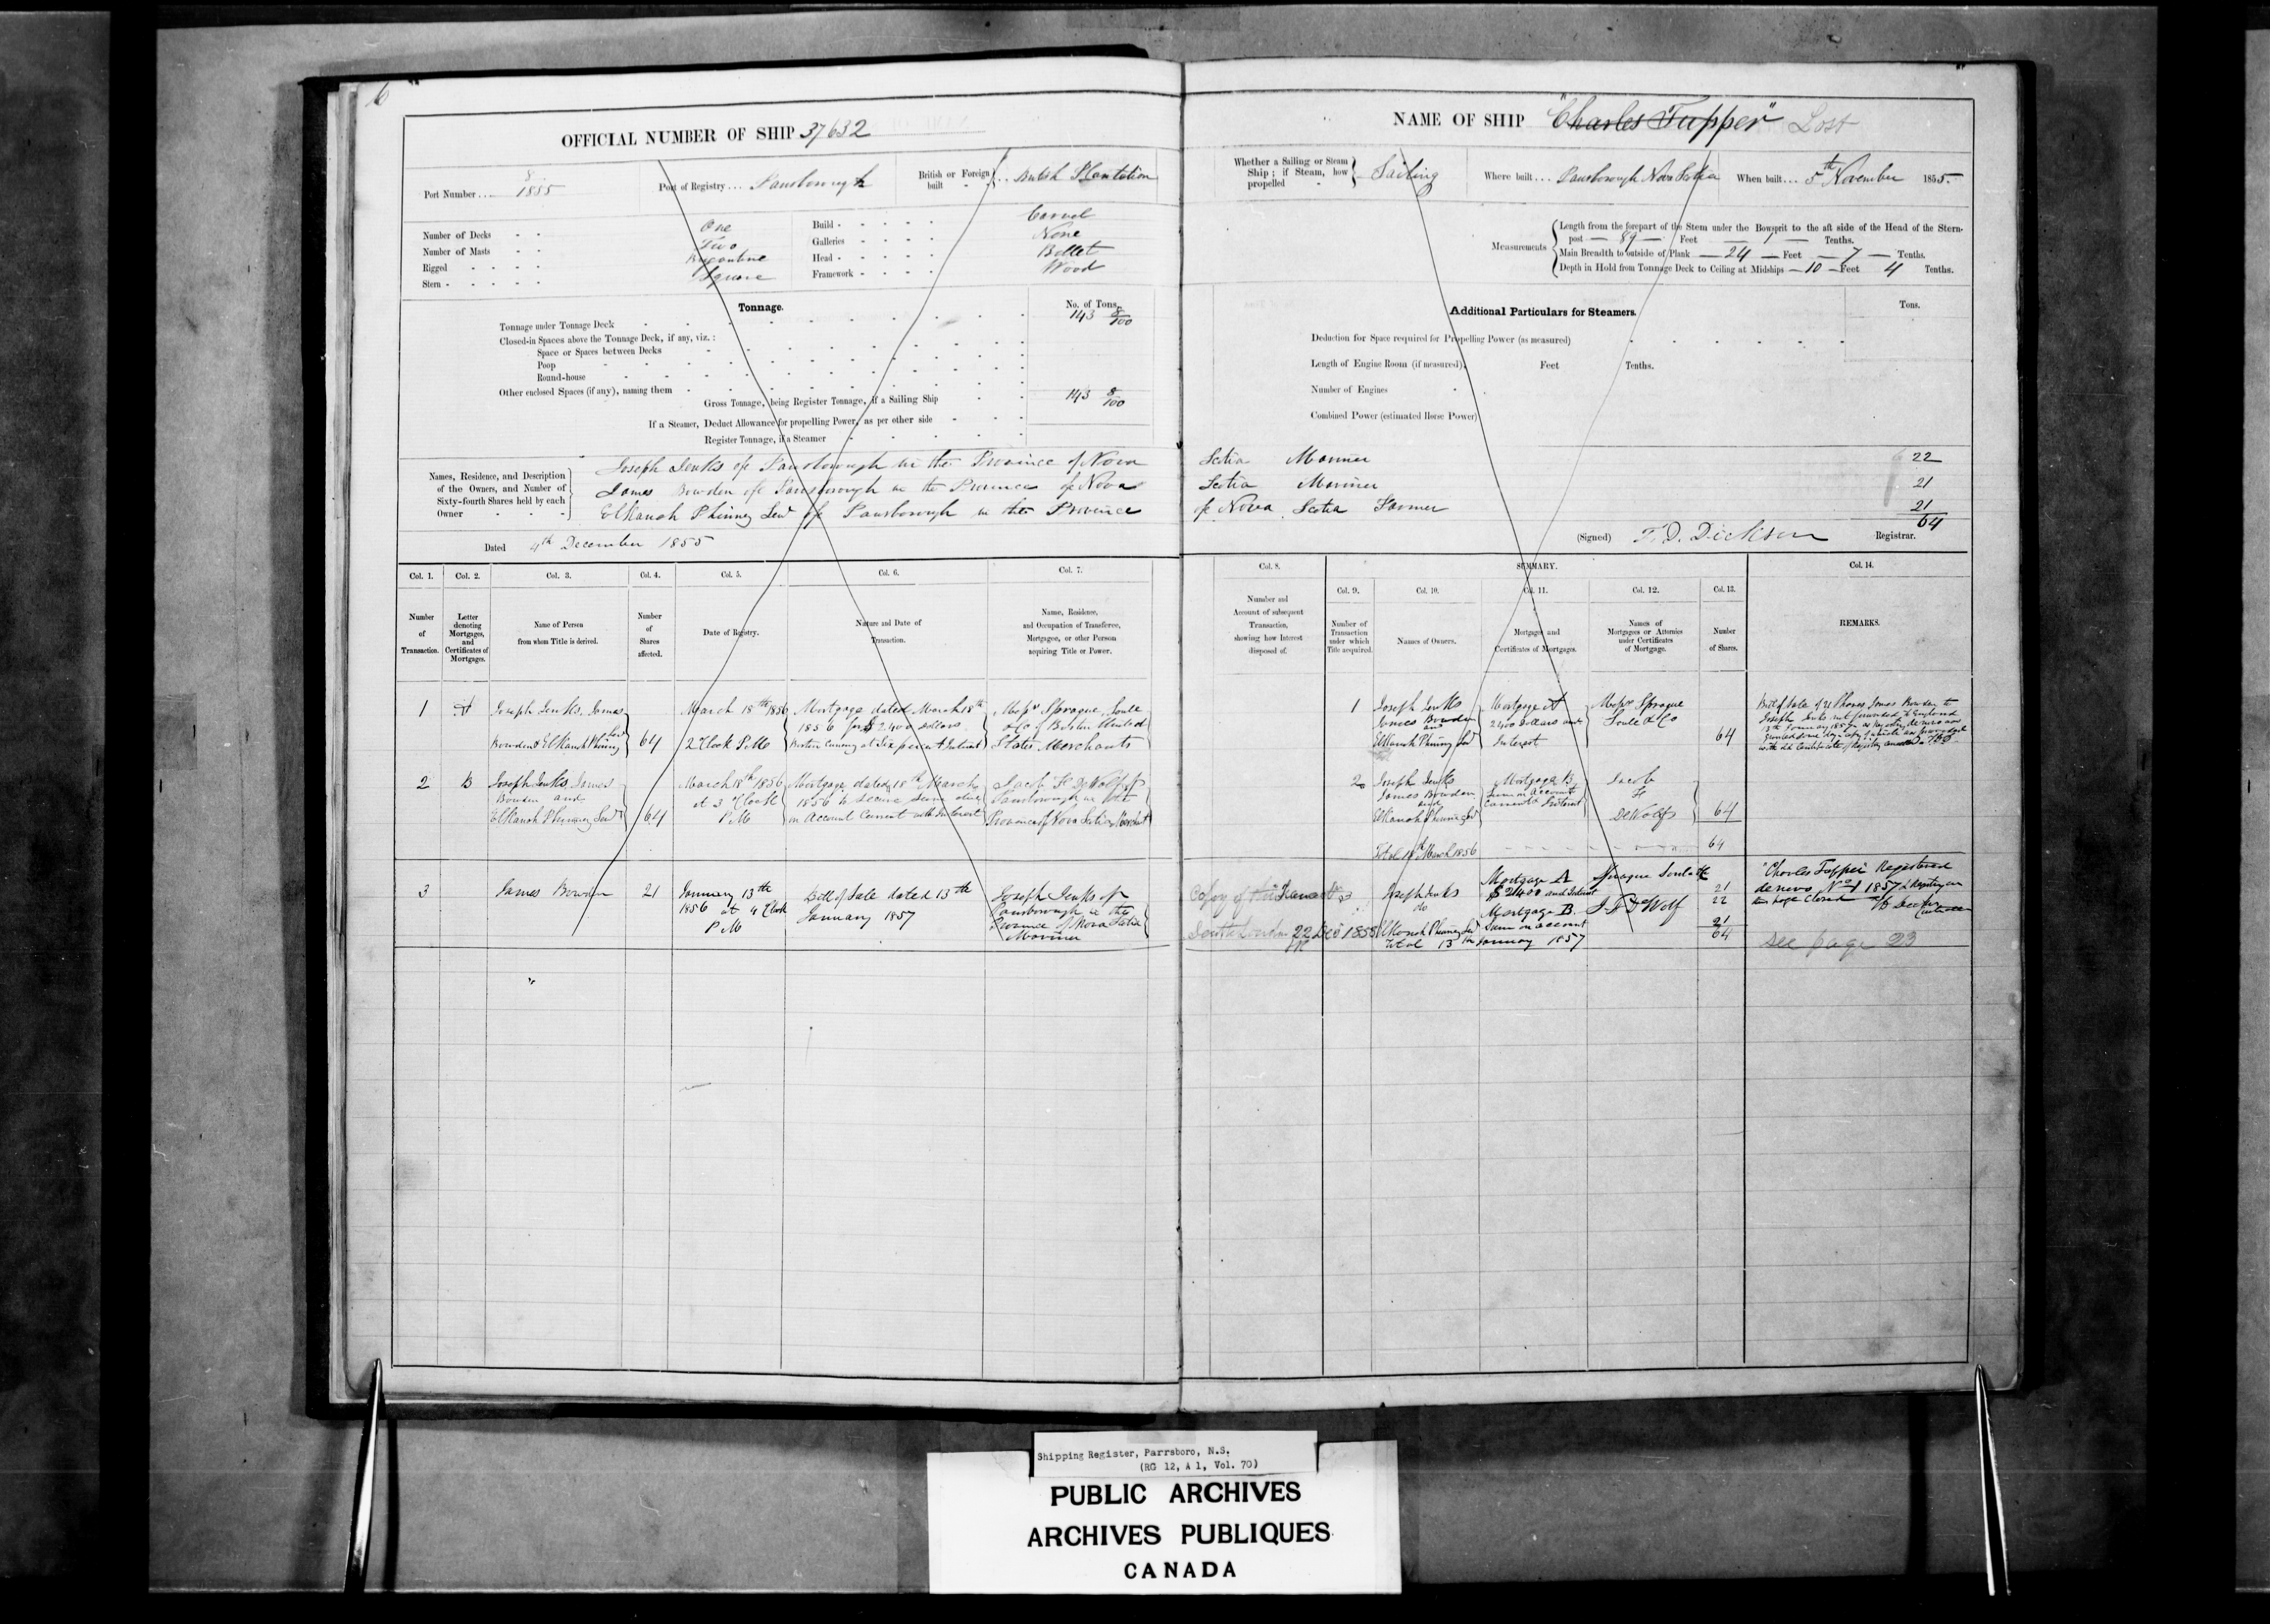 6
OFFICIAL NUMBER OF SHIP 37632
Port Number .... 8/1855
Port of Registry ... Parrsborough
British or Foreign built - - } .. British Plantation
Number of Decks - - One
Number of Masts - - Two
Rigged - - - - Brigantine
Stern - - - - - Square
Build - - - - - Carvel
Galleries - - - - None
Head - - - - - Billet
Framework - - - - Wood
Tonnage.
No. of Tons.
Tonnage under Tonnage Deck 143 8/100
Closed-in Spaces above the Tonnage Deck, if any, viz. :
Space or Spaces between Decks
Poop
Round-house
Other enclosed Spaces (if any), naming them
Gross Tonnage, being Register Tonnage, if a Sailing Ship 143 8/100
If a Steamer, Deduct Allowance for propelling Power, as per other side
Register Tonnage, if a Steamer
NAME OF SHIP "Charles Tupper" Lost
Whether a Sailing or Steam Ship ; if Steam, how propelled - } Sailing
Where built ... Parrsborough Nova Scotia
When built ... 5th November 1855.
Measurements
Length from the forepart of the Stem under the Bowsprit to the aft side of the Head of the Stern-
post — 89 — Feet — 1 — Tenths.
Main Breadth to outside of Plank — 24 — Feet — 7 — Tenths.
Depth in Hold from Tonnage Deck to Ceiling at Midships — 10 — Feet 4 Tenths.
Additional Particulars for Steamers.
Tons.
Deduction for Space required for Propelling Power (as measured)
Length of Engine Room (if measured), Feet Tenths.
Number of Engines
Combined Power (estimated Horse Power)
Names, Residence, and Description
of the Owners, and Number of
Sixty-fourth Shares held by each
Owner
Joseph Jenks of Parrsborough in the Province of Nova Scotia Mariner 22
James Bowden of Parrsborough in the Province of Nova Scotia Mariner 21
Elkanah Phinney Senr of Parrsborough in the Province of Nova Scotia Farmer 21
64
Dated 4th December 1855
(Signed) T. D. Dickson Registrar.
Col. 1.
Number of Transaction.
Col. 2.
Letter denoting Mortgages, and Certificates of Mortgages.
Col. 3.
Name of Person from whom Title is derived.
Col. 4.
Number of Shares affected.
Col. 5.
Date of Registry.
Col. 6.
Nature and Date of Transaction.
Col. 7.
Name, Residence, and Occupation of Transferee, Mortgagee, or other Person acquiring Title or Power.
Col. 8.
Number and Account of subsequent Transaction, showing how Interest disposed of.
SUMMARY.
Col. 9.
Number of Transaction under which Title acquired.
Col. 10.
Names of Owners.
Col. 11.
Mortgages and Certificates of Mortgages.
Col. 12.
Names of Mortgagees or Attornies under Certificates of Mortgage.
Col. 13.
Number of Shares.
Col. 14.
REMARKS.
1
A
Joseph Jenks, James
Bowden & Elkanah Phinney Senr
64
March 18th 1856
2 Clock P.M.
Mortgage dated March 18th
1856 for $2400 dollars
Boston Currency at Six percent Interest
Messrs Sprague, Soule
& Co of Boston United
States Merchants
1
Joseph Jenks
James Bowden
and
Elkanah Phinney Senr
Mortgage A
2400 Dollars and
Interest
Messrs Sprague
Soule & Co
64
Bill of Sale of 21 Shares James Bowden to
Joseph Jenks not forwarded to England
2
B
Joseph Jenks James
Bowden and
Elkanah Phinney Senr
64
March 18th 1856
at 3 O'Clock
P M
Mortgage dated 18th March
1856 to secure sum due
on Account Current with Interest
Jacob F. DeWolf of
Parrsborough in the
Province of Nova Scotia Merchant
2
Joseph Jenks
James Bowden
and
Elkanah Phinney Senr
Mortgage B
Sum on Account
Current & Interest
Jacob
F
DeWolf
64
Total 18th March 1856
64
3
James Bowden
21
January 13th
1856 at 4 Clock
P M
Bill of Sale dated 13th
January 1857
Joseph Jenks of
Parrsborough in the
Province of Nova Scotia
Mariner
Copy of
Sent to London 22 Dec 1858
3
Joseph Jenks
do
Elkanah Phinney Senr
Total 13th January 1857
Mortgage A
$2400 and Interest
Mortgage B.
Sum on account
Sprague Soule &c
J F DeWolf
21
22
21
64
"Charles Tupper" Registered
de novo No 1 1857 & Registry on
this page closed
see page 23
Shipping Register, Parrsboro, N.S.
(RG 12, A 1, Vol. 70)
PUBLIC ARCHIVES
ARCHIVES PUBLIQUES
CANADA